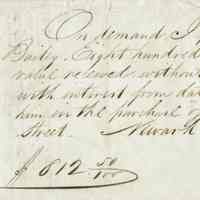 On demand I
Baily. Eight hundred
value received without
with interest from da
him in the purchase o
Street. Newark
$ 812 50/100